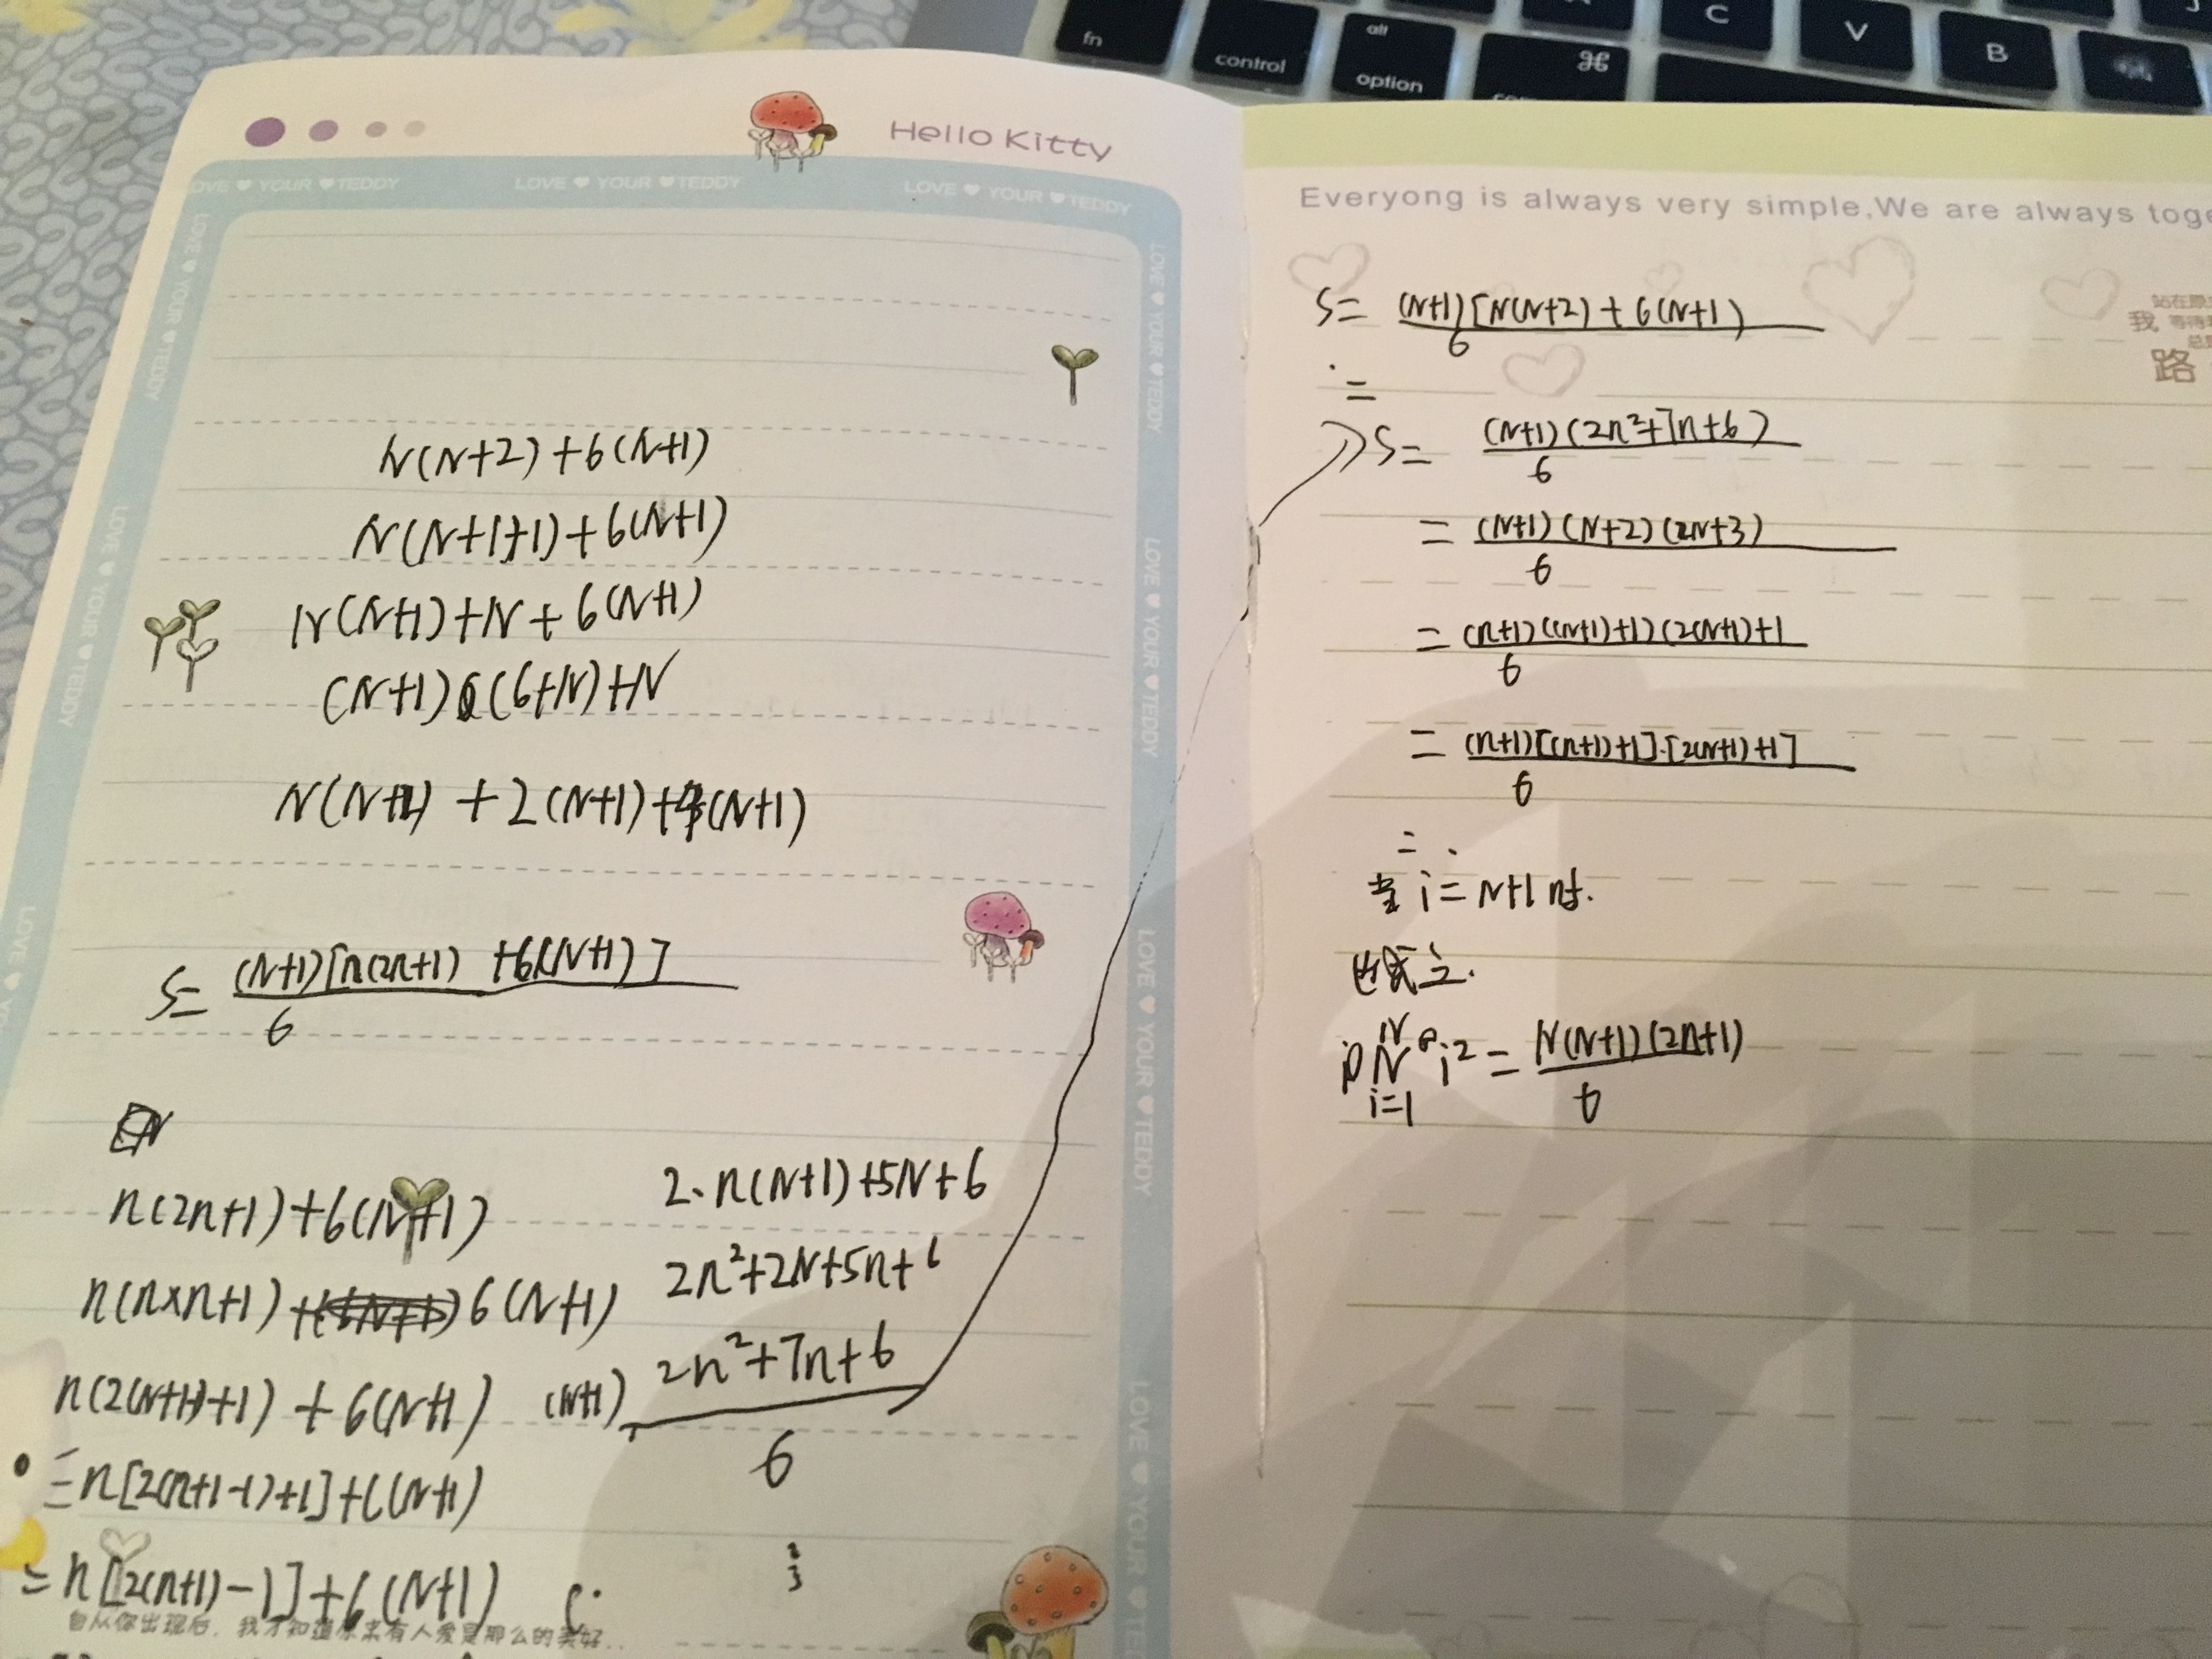 fn
control
alt
option
⌘
C
V
B
Hello Kitty
LOVE ♥ YOUR ♥ TEDDY
LOVE ♥ YOUR ♥ TEDDY
LOVE ♥ YOUR ♥ TEDDY
N(N+2)+6(N+1)
N(N+1+1)+6(N+1)
N(N+1)+N+6(N+1)
(N+1)(6+N)+N
N(N+1) +2(N+1)+4(N+1)
S= (N+1)[n(2n+1) +6(N+1)]
6
n(2n+1)+6(N+1)
n(n×n+1) 6(N+1)
n(2(N+1)+1) + 6(N+1)
=n[2(n+1-1)+1]+6(N+1)
=n[2(n+1)-1]+6(N+1)
2·n(N+1)+5N+6
2n²+2N+5n+6
(N+1) 2n²+7n+6
6
自从你出现后，我才知道原来有人爱是那么的美好..
Everyong is always very simple,We are always toge
我
路
S= (N+1)[N(N+2)+6(N+1)
6
=
S= (N+1)(2n²+7n+6)
6
= (N+1)(N+2)(2N+3)
6
= (n+1)((N+1)+1)(2(N+1)+1
6
= (n+1)[(n+1)+1]·[2(N+1)+1]
6
=
当 i=N+1时.
也成立.
N
i² = N(N+1)(2n+1)
i=1
6